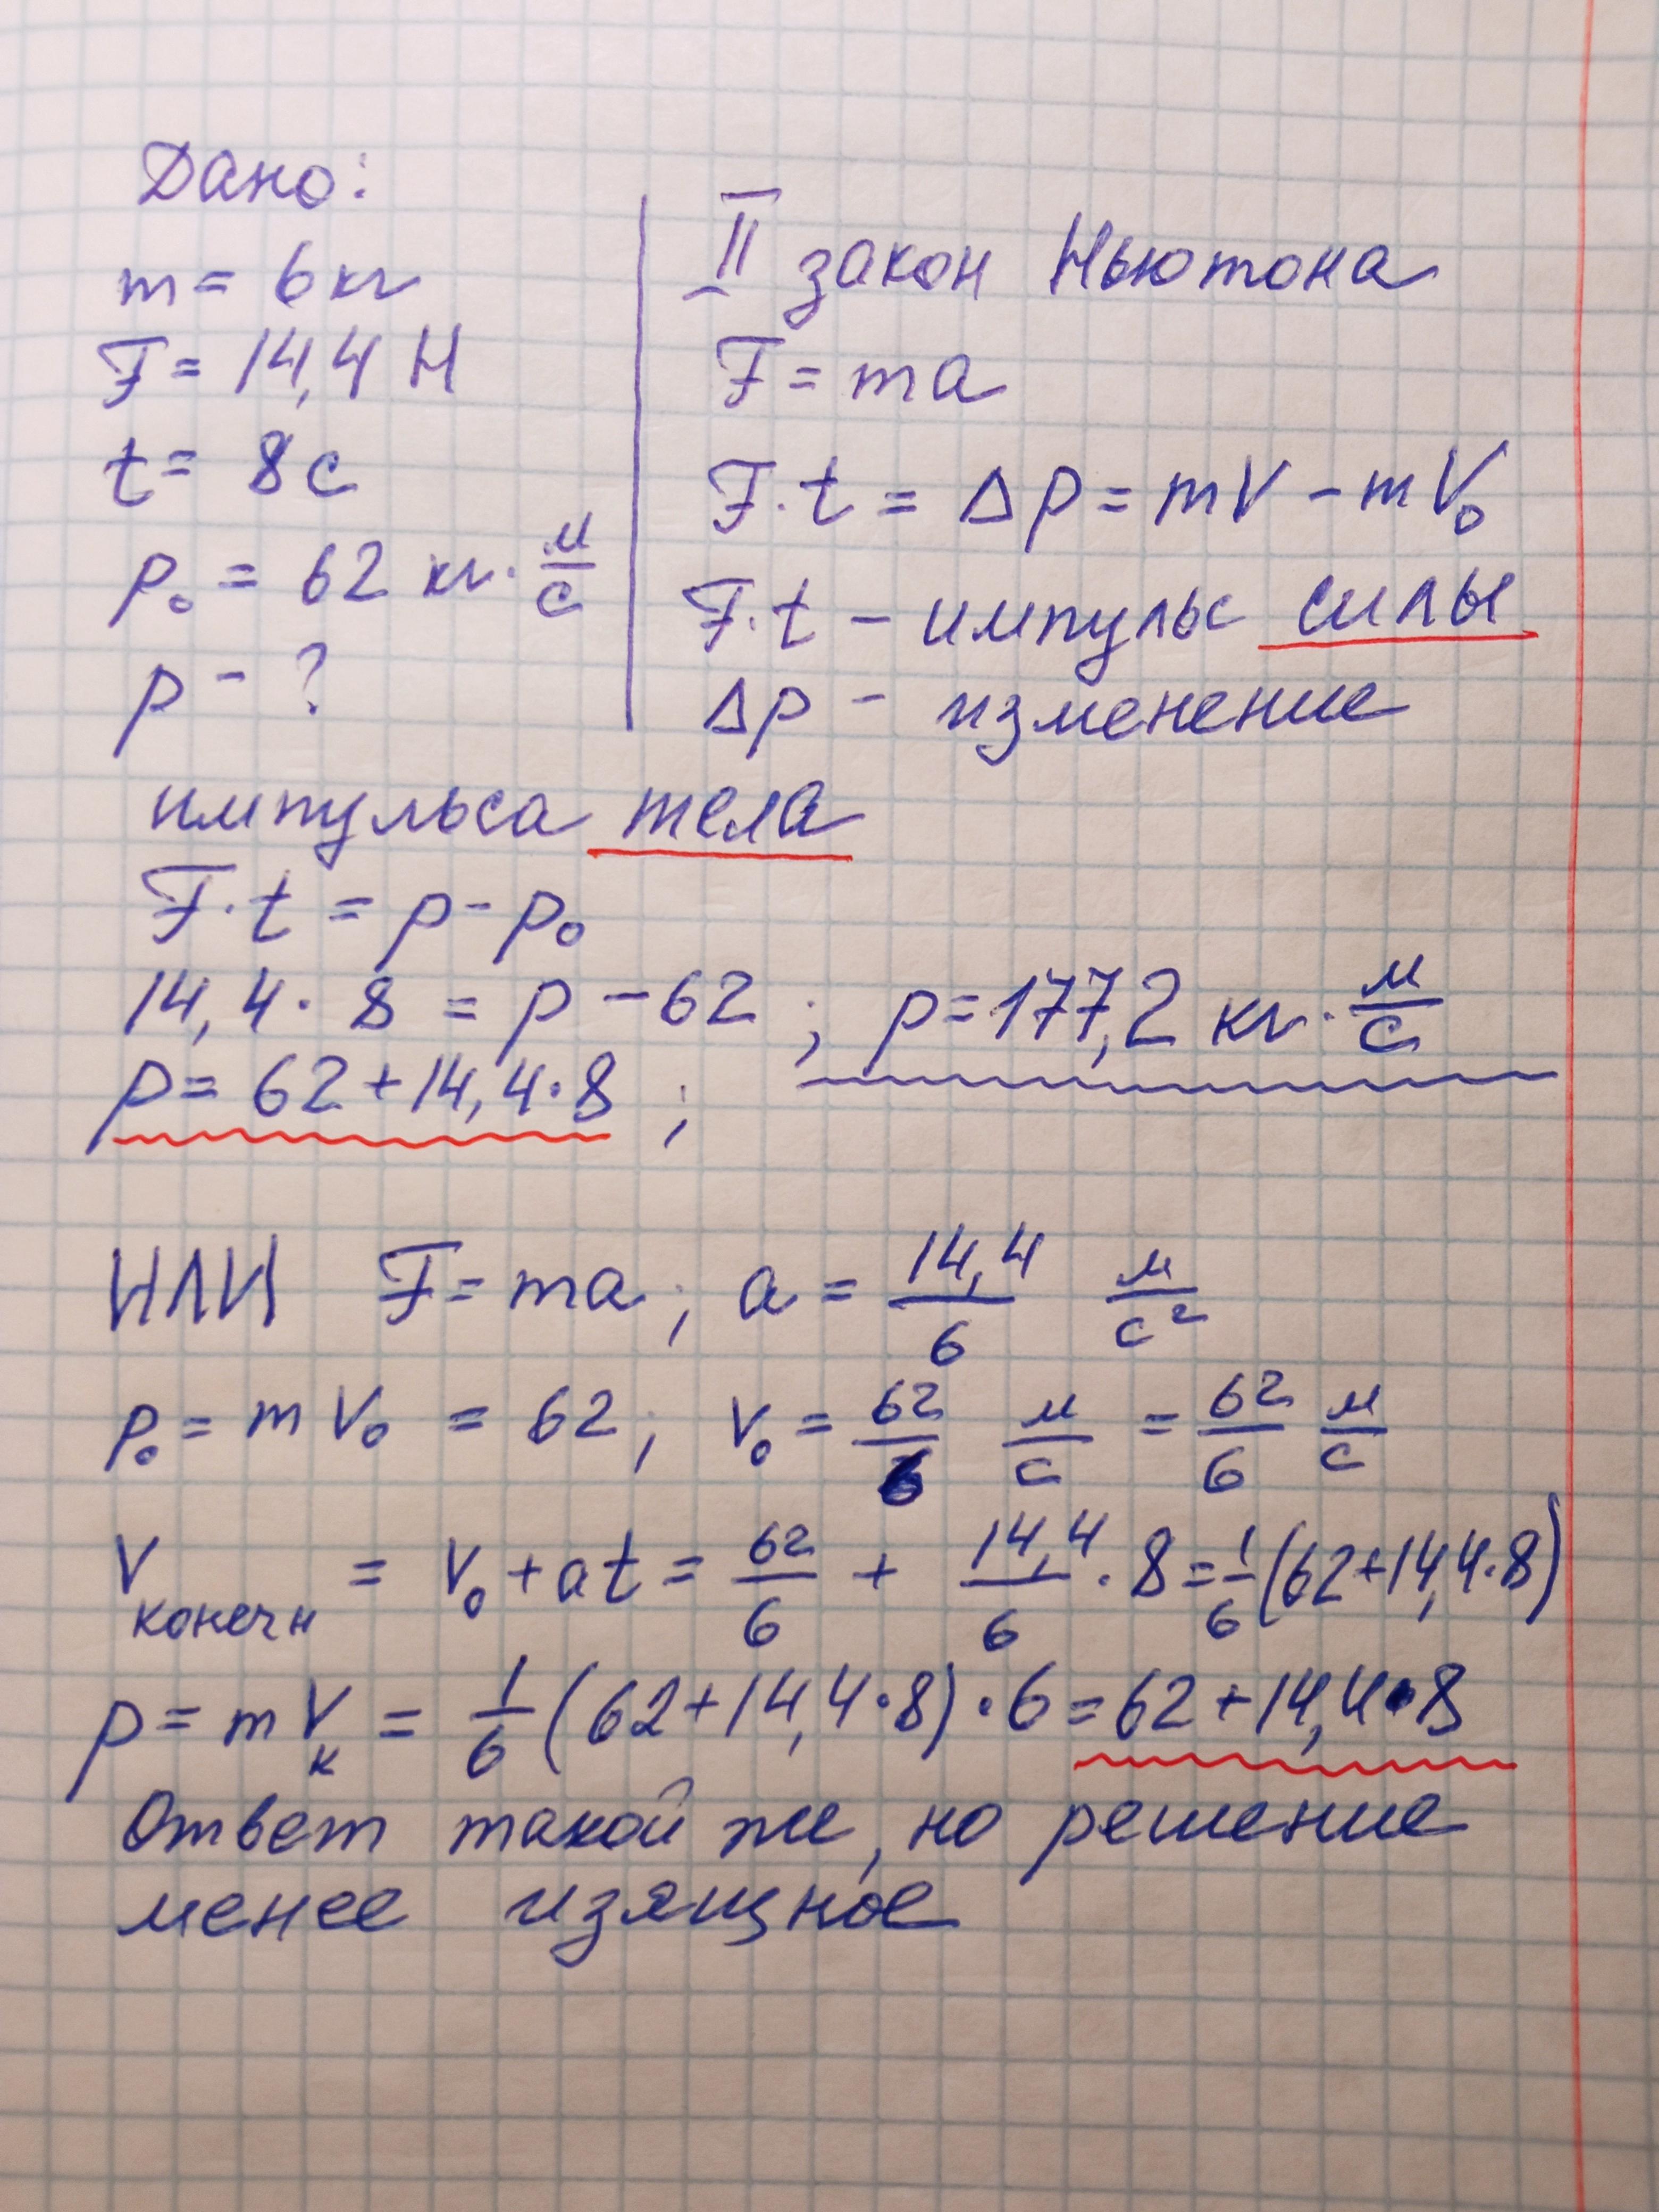 Дано:
m = 6 кг
F = 14,4 Н
t = 8 с
p₀ = 62 кг · м/с
p - ?
II закон Ньютона
F = ma
F · t = Δp = mV - mV₀
F · t - импульс силы
Δp - изменение
импульса тела
F · t = p - p₀
14,4 · 8 = p - 62 ; p = 177,2 кг · м/с
p = 62 + 14,4 · 8 ;
ИЛИ F = ma ; a = 14,4/6 м/с²
p₀ = m V₀ = 62 ; V₀ = 62/6 м/с = 62/6 м/с
Vконечн = V₀ + at = 62/6 + 14,4/6 · 8 = 1/6 (62 + 14,4 · 8)
p = m Vк = 1/6 (62 + 14,4 · 8) · 6 = 62 + 14,4 · 8
Ответ такой же, но решение
менее изящное